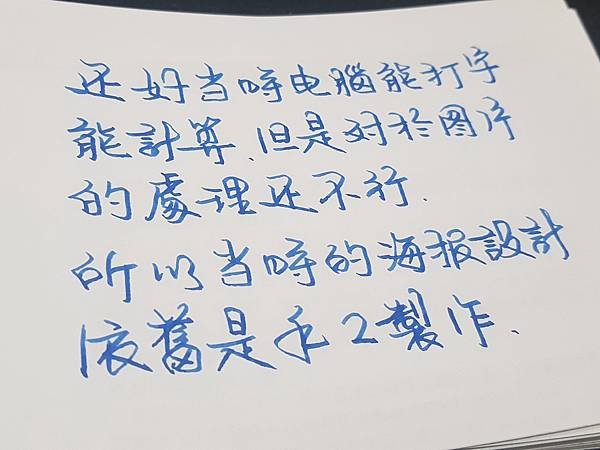 还好当時电腦能打字
能計算、但是对於图片
的處理还不行.
所以当時的海报設計
依舊是手工製作.